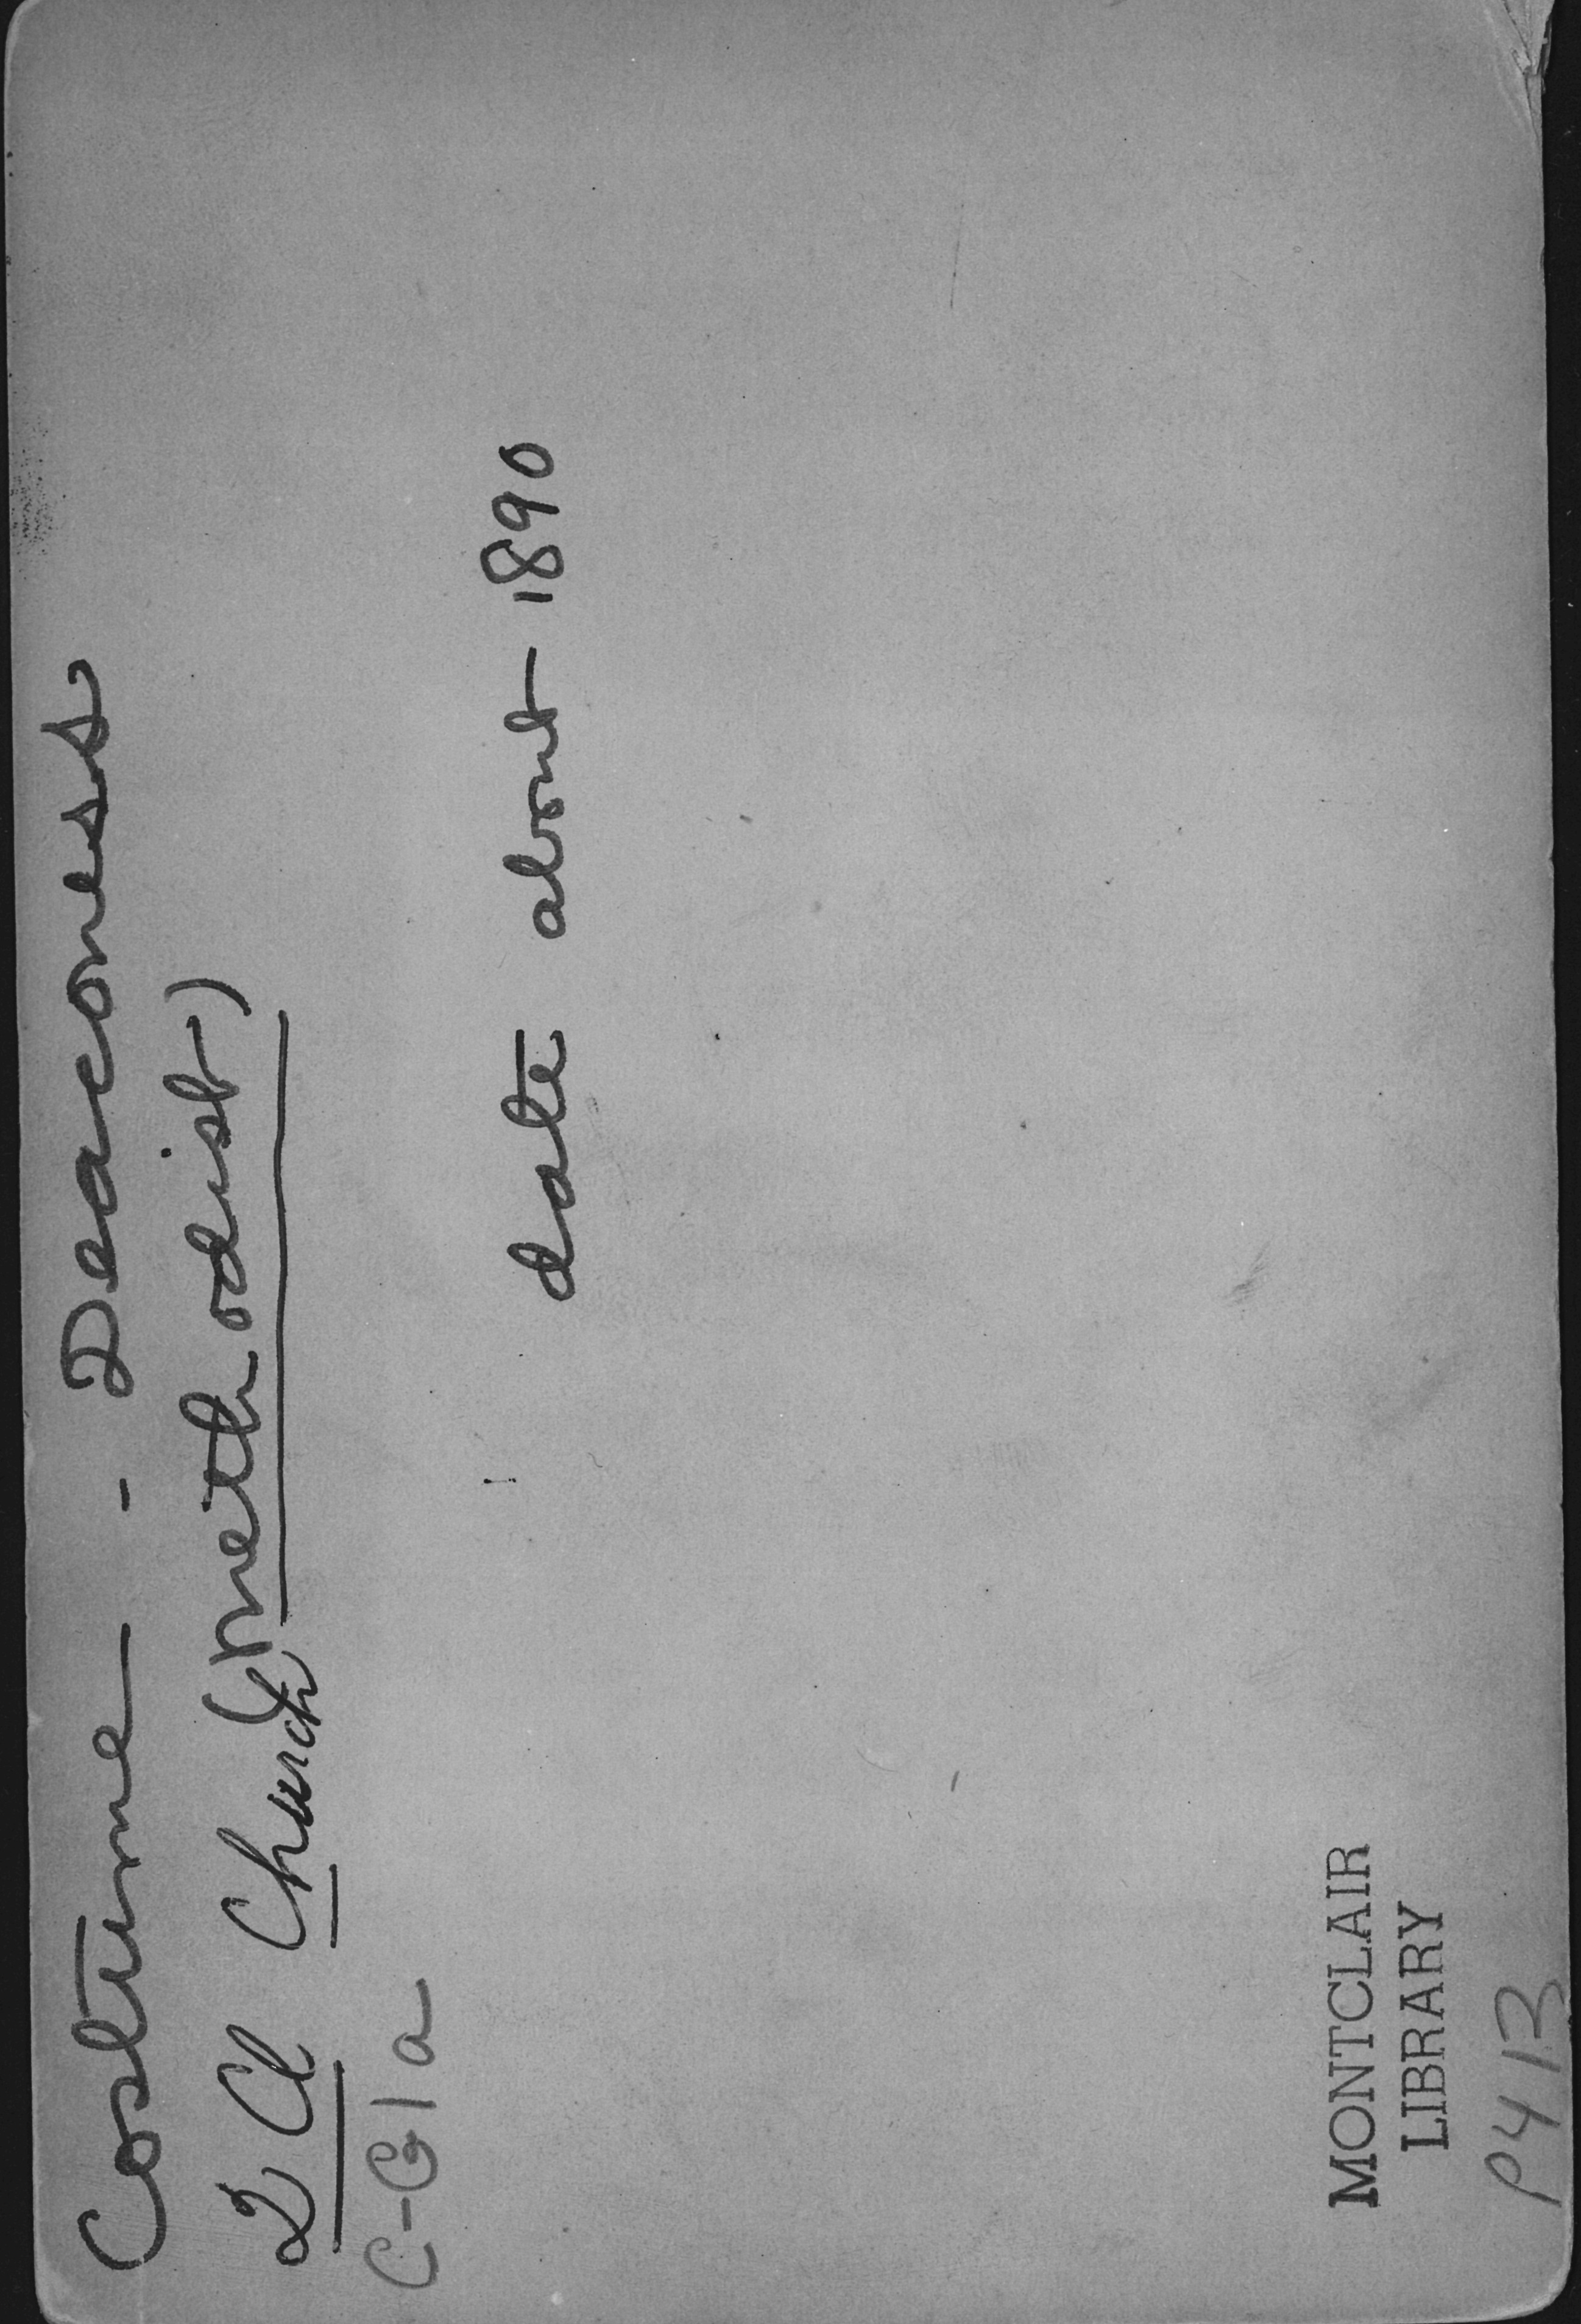 Costume - Deaconess
2 Cl Church (methodist)
C-G1a
date about 1890
MONTCLAIR
LIBRARY
P413